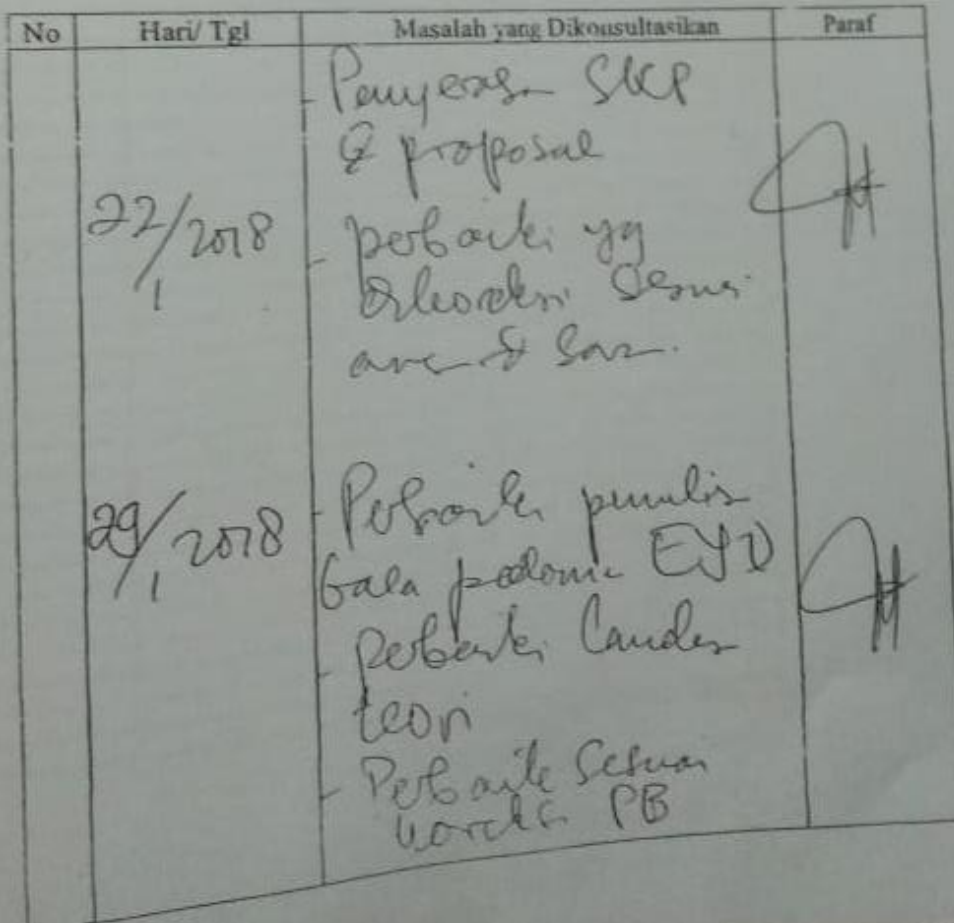 No Hari/ Tgl Masalah yang Dikonsultasikan Paraf
- Penyerahan SKP
& proposal
22/1 2018
- perbaiki yg
dikoreksi sesuai
& saran.
29/1 2018
- Perbaiki penulis
baca pedoman EYD
- perbaiki landasan
teori
- Perbaiki sesuai
koreksi PB